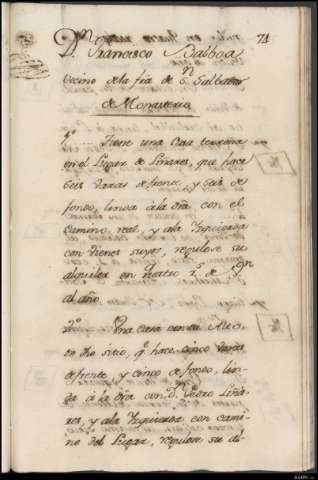 71
Dn Francisco Balboa
vecino de la fra de Sn Salbador
de Monasterio
1ª Tiene una Casa terrena
en el Lugar de Linares, que hace
seis varas de frente, y seis de
fondo, linda á la dra con el
Camino real, y a la Izquierda
con vienes suyos, regulose su
alquiler en quatro rs. de Von
al año.
2ª Una Casa con su Alto
en dho sitio, q hace cinco varas
de frente, y cinco de fondo, lin-
da á la dra con Dn Pedro Liña-
res, y a la Izquierda con cami-
no del Lugar, regulose su al-